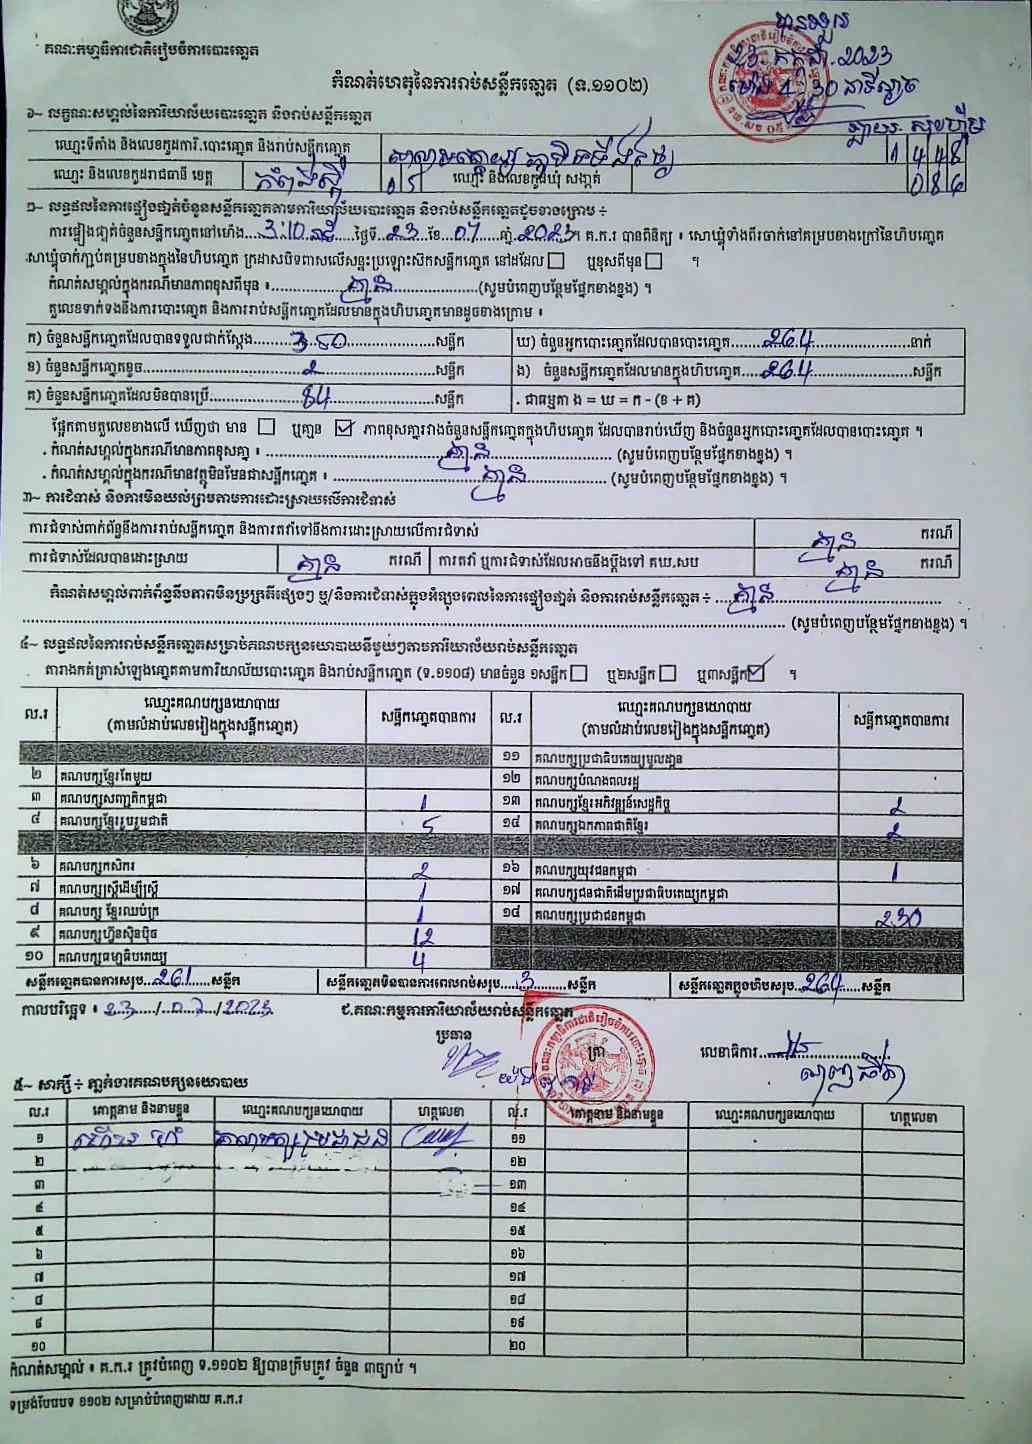 គណៈកម្មាធិការជាតិរៀបចំការបោះឆ្នោត
បានទទួល
23 កក្កដា. 2023
ម៉ោង 4:30 នាទីល្ងាច
កំណត់ហេតុនៃការរាប់សន្លឹកឆ្នោត (ទ.១១០២)
១~ លក្ខណៈសម្គាល់នៃការិយាល័យបោះឆ្នោត និងរាប់សន្លឹកឆ្នោត
ឈ្មោះទីតាំង និងលេខកូដការ.បោះឆ្នោត និងរាប់សន្លឹកឆ្នោត 1448
ឈ្មោះ និងលេខកូដរាជធានី ខេត្ត កំពង់ស្ពឺ 05 ឈ្មោះ និងលេខកូដឃុំ សង្កាត់ 086
២~ លទ្ធផលនៃការផ្ទៀងផ្ទាត់ចំនួនសន្លឹកឆ្នោតតាមការិយាល័យបោះឆ្នោត និងរាប់សន្លឹកឆ្នោតដូចខាងក្រោម ÷
ការផ្ទៀងផ្ទាត់ចំនួនសន្លឹកឆ្នោតនៅម៉ោង...3:10 នាទី.....ថ្ងៃទី...23...ខែ...07.....ឆ្នាំ..2023។ គ.ក.រ បានពិនិត្យ ៖ សោឃ្លុំទាំងពីរចាក់នៅគម្របខាងក្រៅនៃហិបឆ្នោត
សោឃ្លុំចាក់ភ្ជាប់គម្របខាងក្នុងនៃហិបឆ្នោត ក្រដាសបិទពាសលើសន្ទះប្រឡោះសឹកសន្លឹកឆ្នោត នៅដដែល □ ឬខុសពីមុន □ ។
កំណត់សម្គាល់ក្នុងករណីមានភាពខុសពីមុន ៖.............គ្មាន..................(សូមបំពេញបន្ថែមផ្នែកខាងខ្នង) ។
តួលេខទាក់ទងនឹងការបោះឆ្នោត និងការរាប់សន្លឹកឆ្នោតដែលមានក្នុងហិបឆ្នោតមានដូចខាងក្រោម ៖
ក) ចំនួនសន្លឹកឆ្នោតដែលបានទទួលជាក់ស្តែង........350..................សន្លឹក ឃ) ចំនួនអ្នកបោះឆ្នោតដែលបានបោះឆ្នោត........264..................នាក់
ខ) ចំនួនសន្លឹកឆ្នោតខូច..............................2..........................សន្លឹក ង) ចំនួនសន្លឹកឆ្នោតដែលមានក្នុងហិបឆ្នោត.....264..................សន្លឹក
គ) ចំនួនសន្លឹកឆ្នោតដែលមិនបានប្រើ..................84......................សន្លឹក . ជាធម្មតា ង = ឃ = ក - (ខ + គ)
ផ្អែកតាមតួលេខខាងលើ ឃើញថា មាន □ ឬគ្មាន ☑ ភាពខុសគ្នារវាងចំនួនសន្លឹកឆ្នោតក្នុងហិបឆ្នោត ដែលបានរាប់ឃើញ និងចំនួនអ្នកបោះឆ្នោតដែលបានបោះឆ្នោត ។
. កំណត់សម្គាល់ក្នុងករណីមានភាពខុសគ្នា ៖..............................គ្មាន.......................... (សូមបំពេញបន្ថែមផ្នែកខាងខ្នង) ។
. កំណត់សម្គាល់ក្នុងករណីមានវត្ថុមិនមែនជាសន្លឹកឆ្នោត ៖..........................គ្មាន.................. (សូមបំពេញបន្ថែមផ្នែកខាងខ្នង) ។
៣~ ការជំទាស់ និងការមិនយល់ព្រមតាមការដោះស្រាយលើការជំទាស់
ការជំទាស់ពាក់ព័ន្ធនឹងការរាប់សន្លឹកឆ្នោត និងការតវ៉ាទៅនឹងការដោះស្រាយលើការជំទាស់ គ្មាន ករណី
ការជំទាស់ដែលបានដោះស្រាយ គ្មាន ករណី ការតវ៉ា ឬការជំទាស់ដែលអាចនឹងប្តឹងទៅ គឃ.សប គ្មាន ករណី
កំណត់សម្គាល់ពាក់ព័ន្ធនឹងភាពមិនប្រក្រតីផ្សេងៗ ឬ/និងការជំទាស់ក្នុងអំឡុងពេលនៃការផ្ទៀងផ្ទាត់ និងការរាប់សន្លឹកឆ្នោត ÷ ....គ្មាន..............................
.......................................................................................................................... (សូមបំពេញបន្ថែមផ្នែកខាងខ្នង) ។
៤~ លទ្ធផលនៃការរាប់សន្លឹកឆ្នោតសម្រាប់គណបក្សនយោបាយនីមួយៗតាមការិយាល័យរាប់សន្លឹកឆ្នោត
តារាងកត់ត្រាសំឡេងឆ្នោតតាមការិយាល័យបោះឆ្នោត និងរាប់សន្លឹកឆ្នោត (ទ.១១០៨) មានចំនួន ១សន្លឹក □ ឬ២សន្លឹក □ ឬ៣សន្លឹក ☑ ។
ល.រ ឈ្មោះគណបក្សនយោបាយ (តាមលំដាប់លេខរៀងក្នុងសន្លឹកឆ្នោត) សន្លឹកឆ្នោតបានការ ល.រ ឈ្មោះគណបក្សនយោបាយ (តាមលំដាប់លេខរៀងក្នុងសន្លឹកឆ្នោត) សន្លឹកឆ្នោតបានការ
១១ គណបក្សប្រជាធិបតេយ្យមូលដ្ឋាន
២ គណបក្សខ្មែរតែមួយ ១២ គណបក្សបំណងពលរដ្ឋ
៣ គណបក្សសញ្ជាតិកម្ពុជា 1 ១៣ គណបក្សខ្មែរអភិវឌ្ឍន៍សេដ្ឋកិច្ច 2
៤ គណបក្សខ្មែររួបរួមជាតិ 5 ១៤ គណបក្សឯកភាពជាតិខ្មែរ 2
៦ គណបក្សកសិករ 2 ១៦ គណបក្សយុវជនកម្ពុជា 1
៧ គណបក្សស្ត្រីដើម្បីស្ត្រី 1 ១៧ គណបក្សជនជាតិដើមប្រជាធិបតេយ្យកម្ពុជា
៨ គណបក្ស ខ្មែរឈប់ក្រ 1 ១៨ គណបក្សប្រជាជនកម្ពុជា 230
៩ គណបក្សហ៊្វុនស៊ិនប៉ិច 12
១០ គណបក្សធម្មាធិបតេយ្យ 4
សន្លឹកឆ្នោតបានការសរុប...261......សន្លឹក សន្លឹកឆ្នោតមិនបានការពេលរាប់សរុប.....3.........សន្លឹក សន្លឹកឆ្នោតក្នុងហិបសរុប...264......សន្លឹក
កាលបរិច្ឆេទ ៖ 23...../..07../2023 ជ.គណៈកម្មការការិយាល័យរាប់សន្លឹកឆ្នោត
ប្រធាន ត្រា លេខាធិការ..............................
៥~ សាក្សី ÷ ភ្នាក់ងារគណបក្សនយោបាយ
ល.រ គោត្តនាម និងនាមខ្លួន ឈ្មោះគណបក្សនយោបាយ ហត្ថលេខា ល.រ គោត្តនាម និងនាមខ្លួន ឈ្មោះគណបក្សនយោបាយ ហត្ថលេខា
១ គណបក្សប្រជាជន ១១
២ ១២
៣ ១៣
៤ ១៤
៥ ១៥
៦ ១៦
៧ ១៧
៨ ១៨
៩ ១៩
១០ ២០
កំណត់សម្គាល់ ៖ គ.ក.រ ត្រូវបំពេញ ទ.១១០២ ឱ្យបានត្រឹមត្រូវ ចំនួន ៣ច្បាប់ ។
ទម្រង់បែបបទ ១១០២ សម្រាប់បំពេញដោយ គ.ក.រ